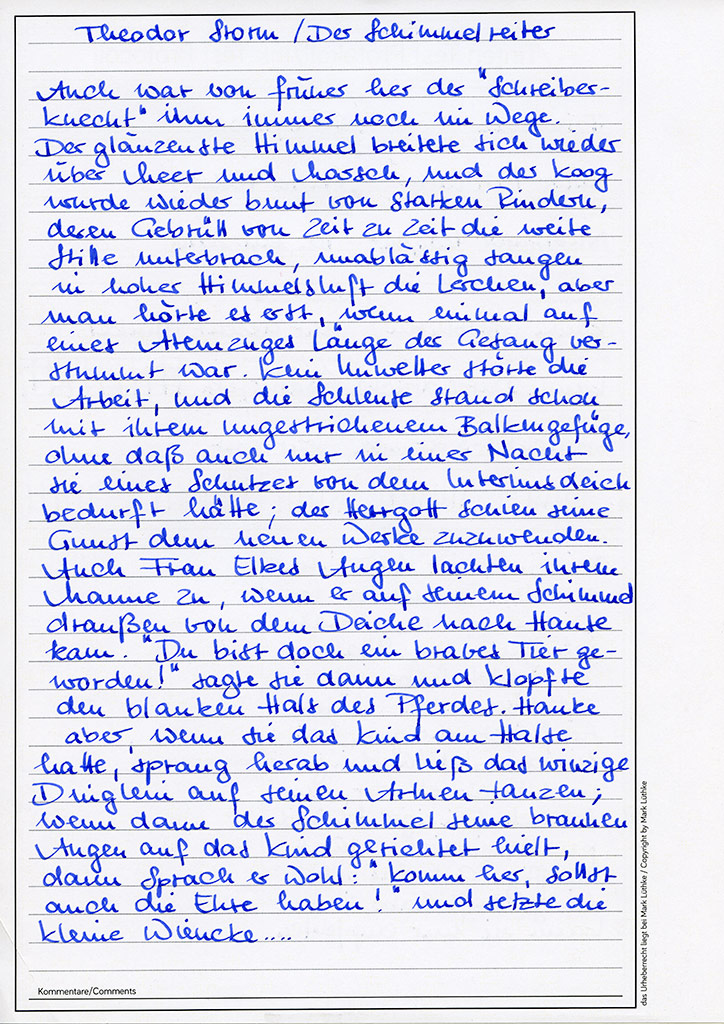 Theodor Storm / Der Schimmelreiter
Auch war von früher her der "Schreiber-
knecht" ihm immer noch im Wege.
Der glänzendste Himmel breitete sich wieder
über Meer und Marsch, und der Koog
wurde wieder bunt von starken Rindern,
deren Gebrüll von Zeit zu Zeit die weite
Stille unterbrach, unablässig sangen
in hoher Himmelsluft die Lerchen, aber
man hörte es erst, wenn einmal auf
eines Atemzuges Länge der Gesang ver-
stummt war. Kein Unwetter störte die
Arbeit, und die Schleuse stand schon
mit ihrem ungestrichenem Balkengefüge,
ohne daß auch nur in einer Nacht
sie eines Schutzes von dem Interimsdeich
bedurft hätte; der Herrgott schien seine
Gunst dem neuen Werke zuzuwenden.
Auch Frau Elkes Augen lachten ihrem
Manne zu, wenn er auf seinem Schimmel
draußen von dem Deiche nach Hause
kam. "Du bist doch ein braves Tier ge-
worden!" sagte sie dann und klopfte
den blanken Hals des Pferdes. Hauke
aber, wenn sie das Kind am Halse
hatte, sprang herab und ließ das winzige
Dinglein auf seinen Armen tanzen;
wenn dann der Schimmel seine braunen
Augen auf das Kind gerichtet hielt,
dann sprach er wohl: "Komm her, sollst
auch die Ehre haben!" und setzte die
kleine Wiencke....
Kommentare/Comments
das Urheberrecht liegt bei Mark Lüthke / Copyright by Mark Lüthke